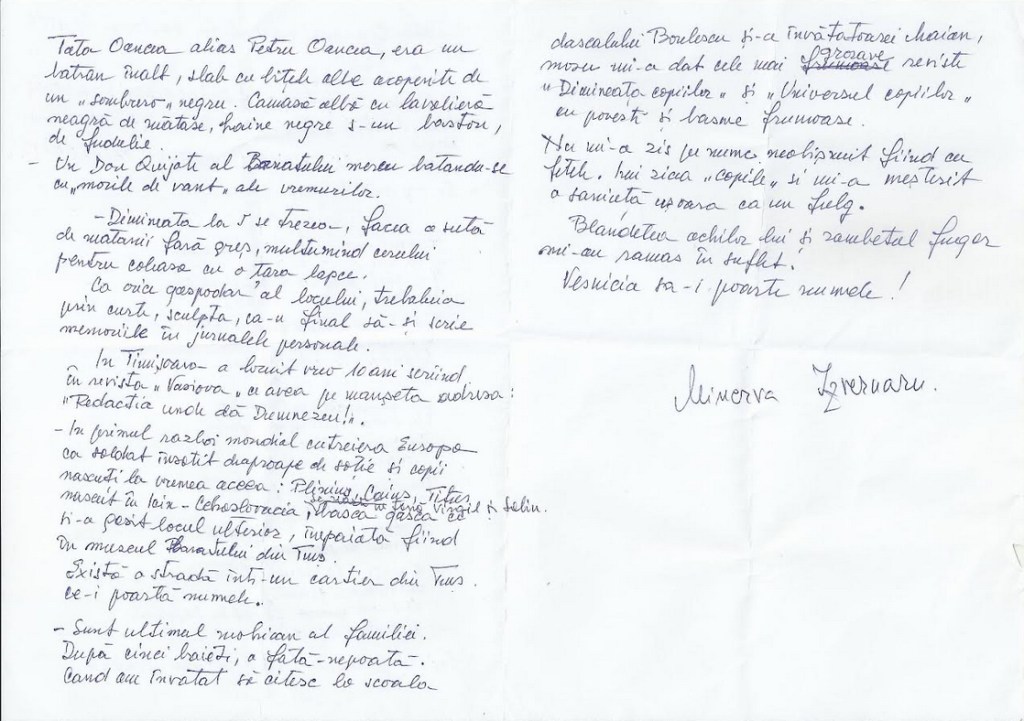 Tata Oancea alias Petru Oancea, era un
batran înalt, slab cu pletele albe acoperite de
un „sombrero" negru. Camasă albă cu lavalieră
neagră de mătase, haine negre s-un baston,
de fudulie.
- Un Don Quijote al Banatului mereu batandu-se
cu „morile de vant" ale vremurilor.
- Dimineata la 5 se trezea, facea o sută
de matanii fară greș, multumind cerului
pentru coleasa cu o țara lapce.
Ca orice gospodar al locului, trebaluia
prin curte, sculpta, ca-n final să-si scrie
memoriile în jurnalele personale.
In Timișoara a locuit vreo 10 ani scriind
în revista „Vasiova" ce avea pe manșeta adresa:
"Redactia unde dă Dumnezeu!".
- In primul razboi mondial cutreiera Europa
ca soldat însotit deaproape de sotie si copii
nascuti la vremea aceea: Plinius, Caius, Titus,
nascut în Cehoslovacia, Virgil si Selin.
si-a gasit locul ulterior, impaiată fiind
în muzeul Banatului din Tms.
Există o stradă intr-un cartier din Tms.
ce-i poartă numele.
- Sunt ultimul mohican al familiei.
După cinci baieti, o fată-nepoată.
Cand am învatat să citesc la scoala
dascalului Boulescu și-a învătatoarei Maian,
mosu mi-a dat cele mai groave reviste
"Dimineata copiilor" și „Universul copiilor"
cu povesti și basme frumoase.
Nu mi-a zis pe nume neobișnuit fiind cu
fetele. Imi zicea „copile" si mi-a meșterit
o saniută ușoara ca un fulg.
Blândetea ochilor lui și zambetul fugar
mi-au ramas în suflet.
Vesnicia sa-i poarte numele!
Minerva Izvernaru.